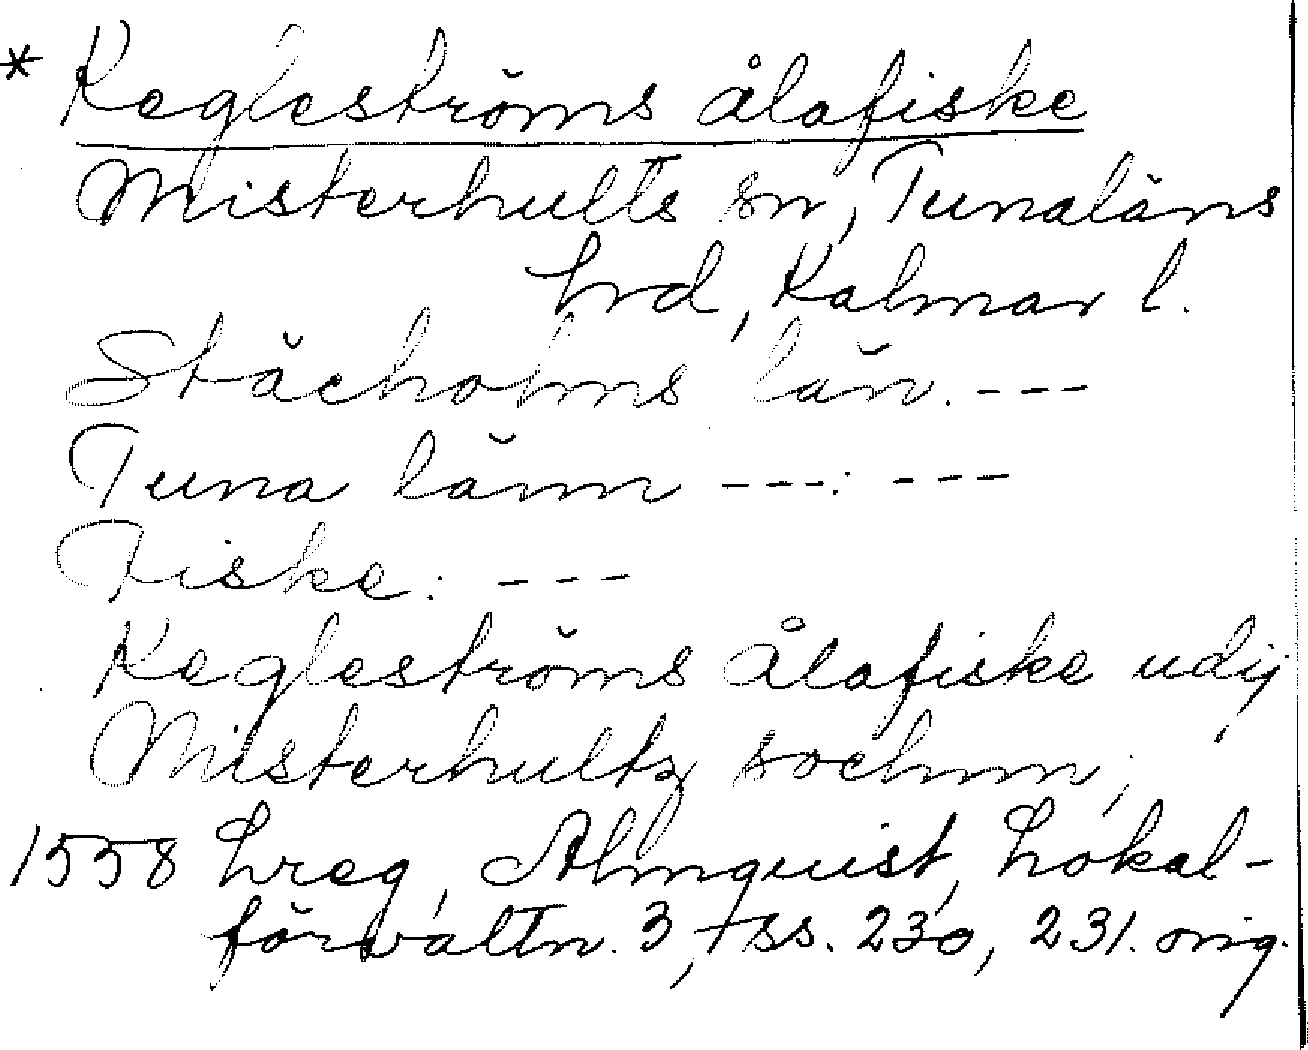 * Kegleströms ålafiske
Misterhults sn, Tunaläns
hrd, Kalmar l.
Stächolms län. ---
Tuna länn ---: ---
Fiske: ---
Kegleströms Ålafiske udij
Misterhultz sochnn;
1558 Lreg, Almquist, Lokal-
förvaltn. 3, ss. 230, 231. orig.